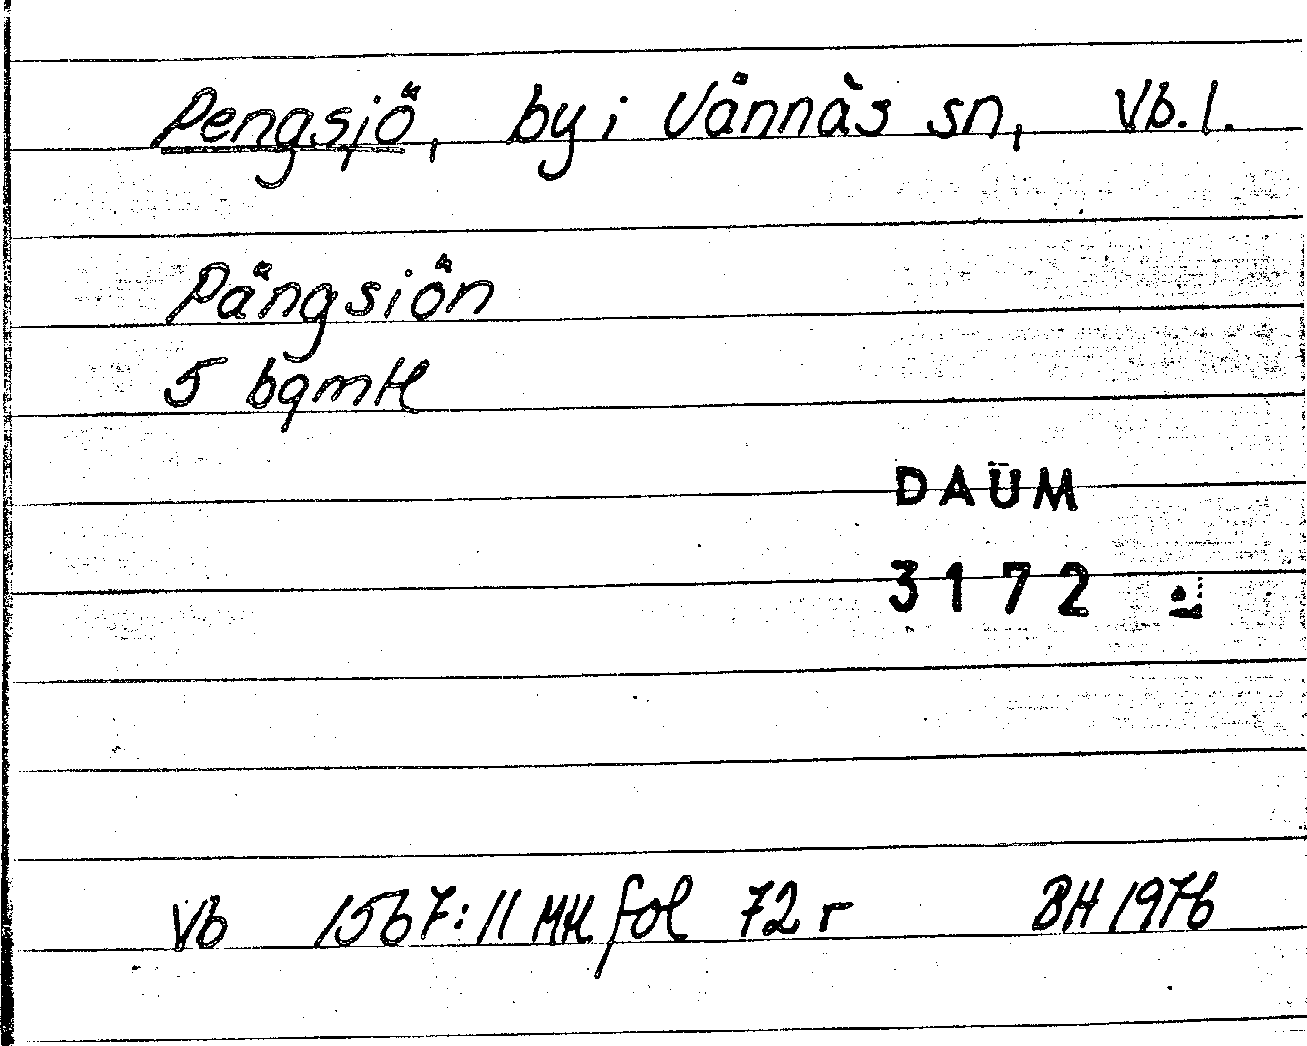 Pengsjö, by i Vännäs sn, Vb. l.
Pängsiön
5 bgmtl
DAUM
3172
Vb 1567:11 MH fol 72 r BH 1976